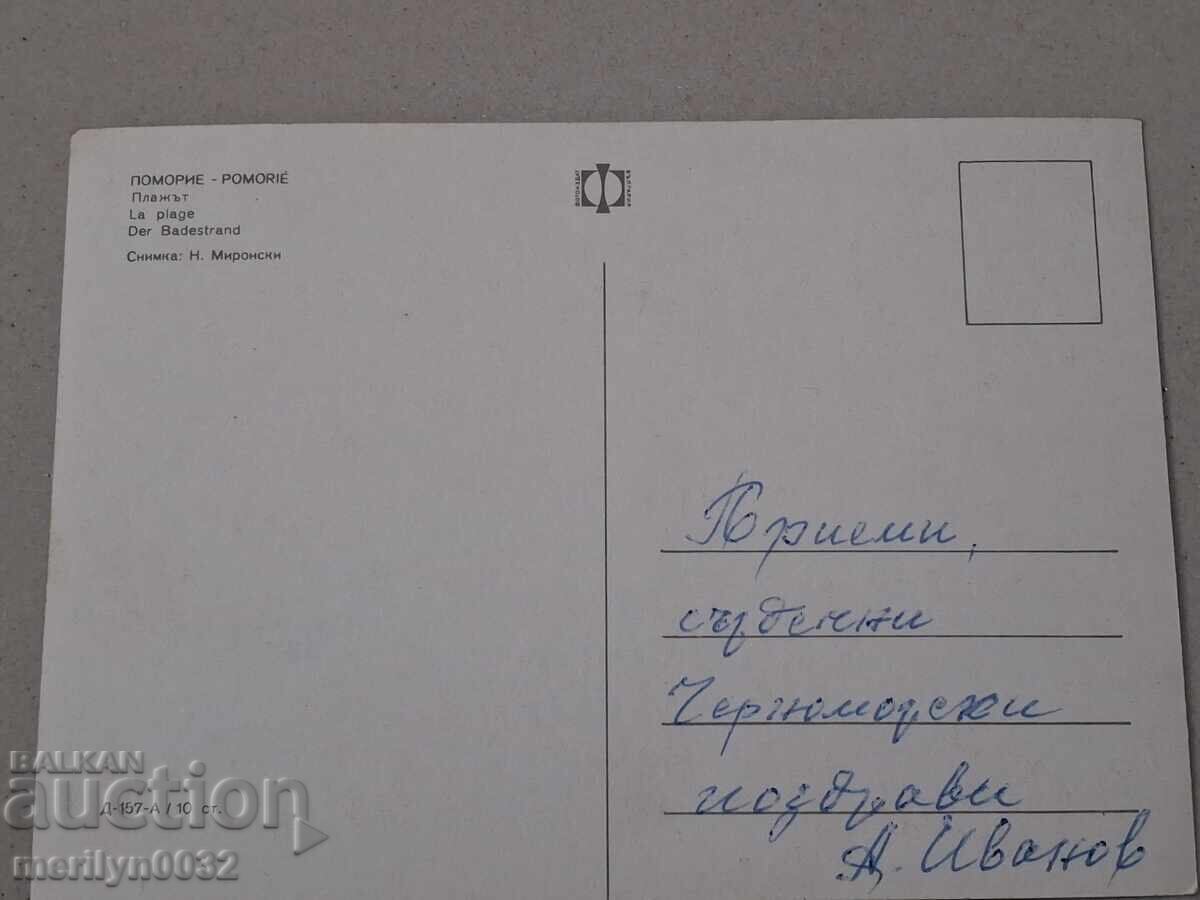 ПОМОРИЕ - POMORIÉ
Плажът
La plage
Der Badestrand
Снимка: Н. Миронски
ФОТОИЗДАТ
БЪЛГАРИЯ
Приеми,
сърдечни
Черноморски
поздрави
А. Иванов
Д-157-А / 10 ст.
BALKAN
auction
merilyn0032